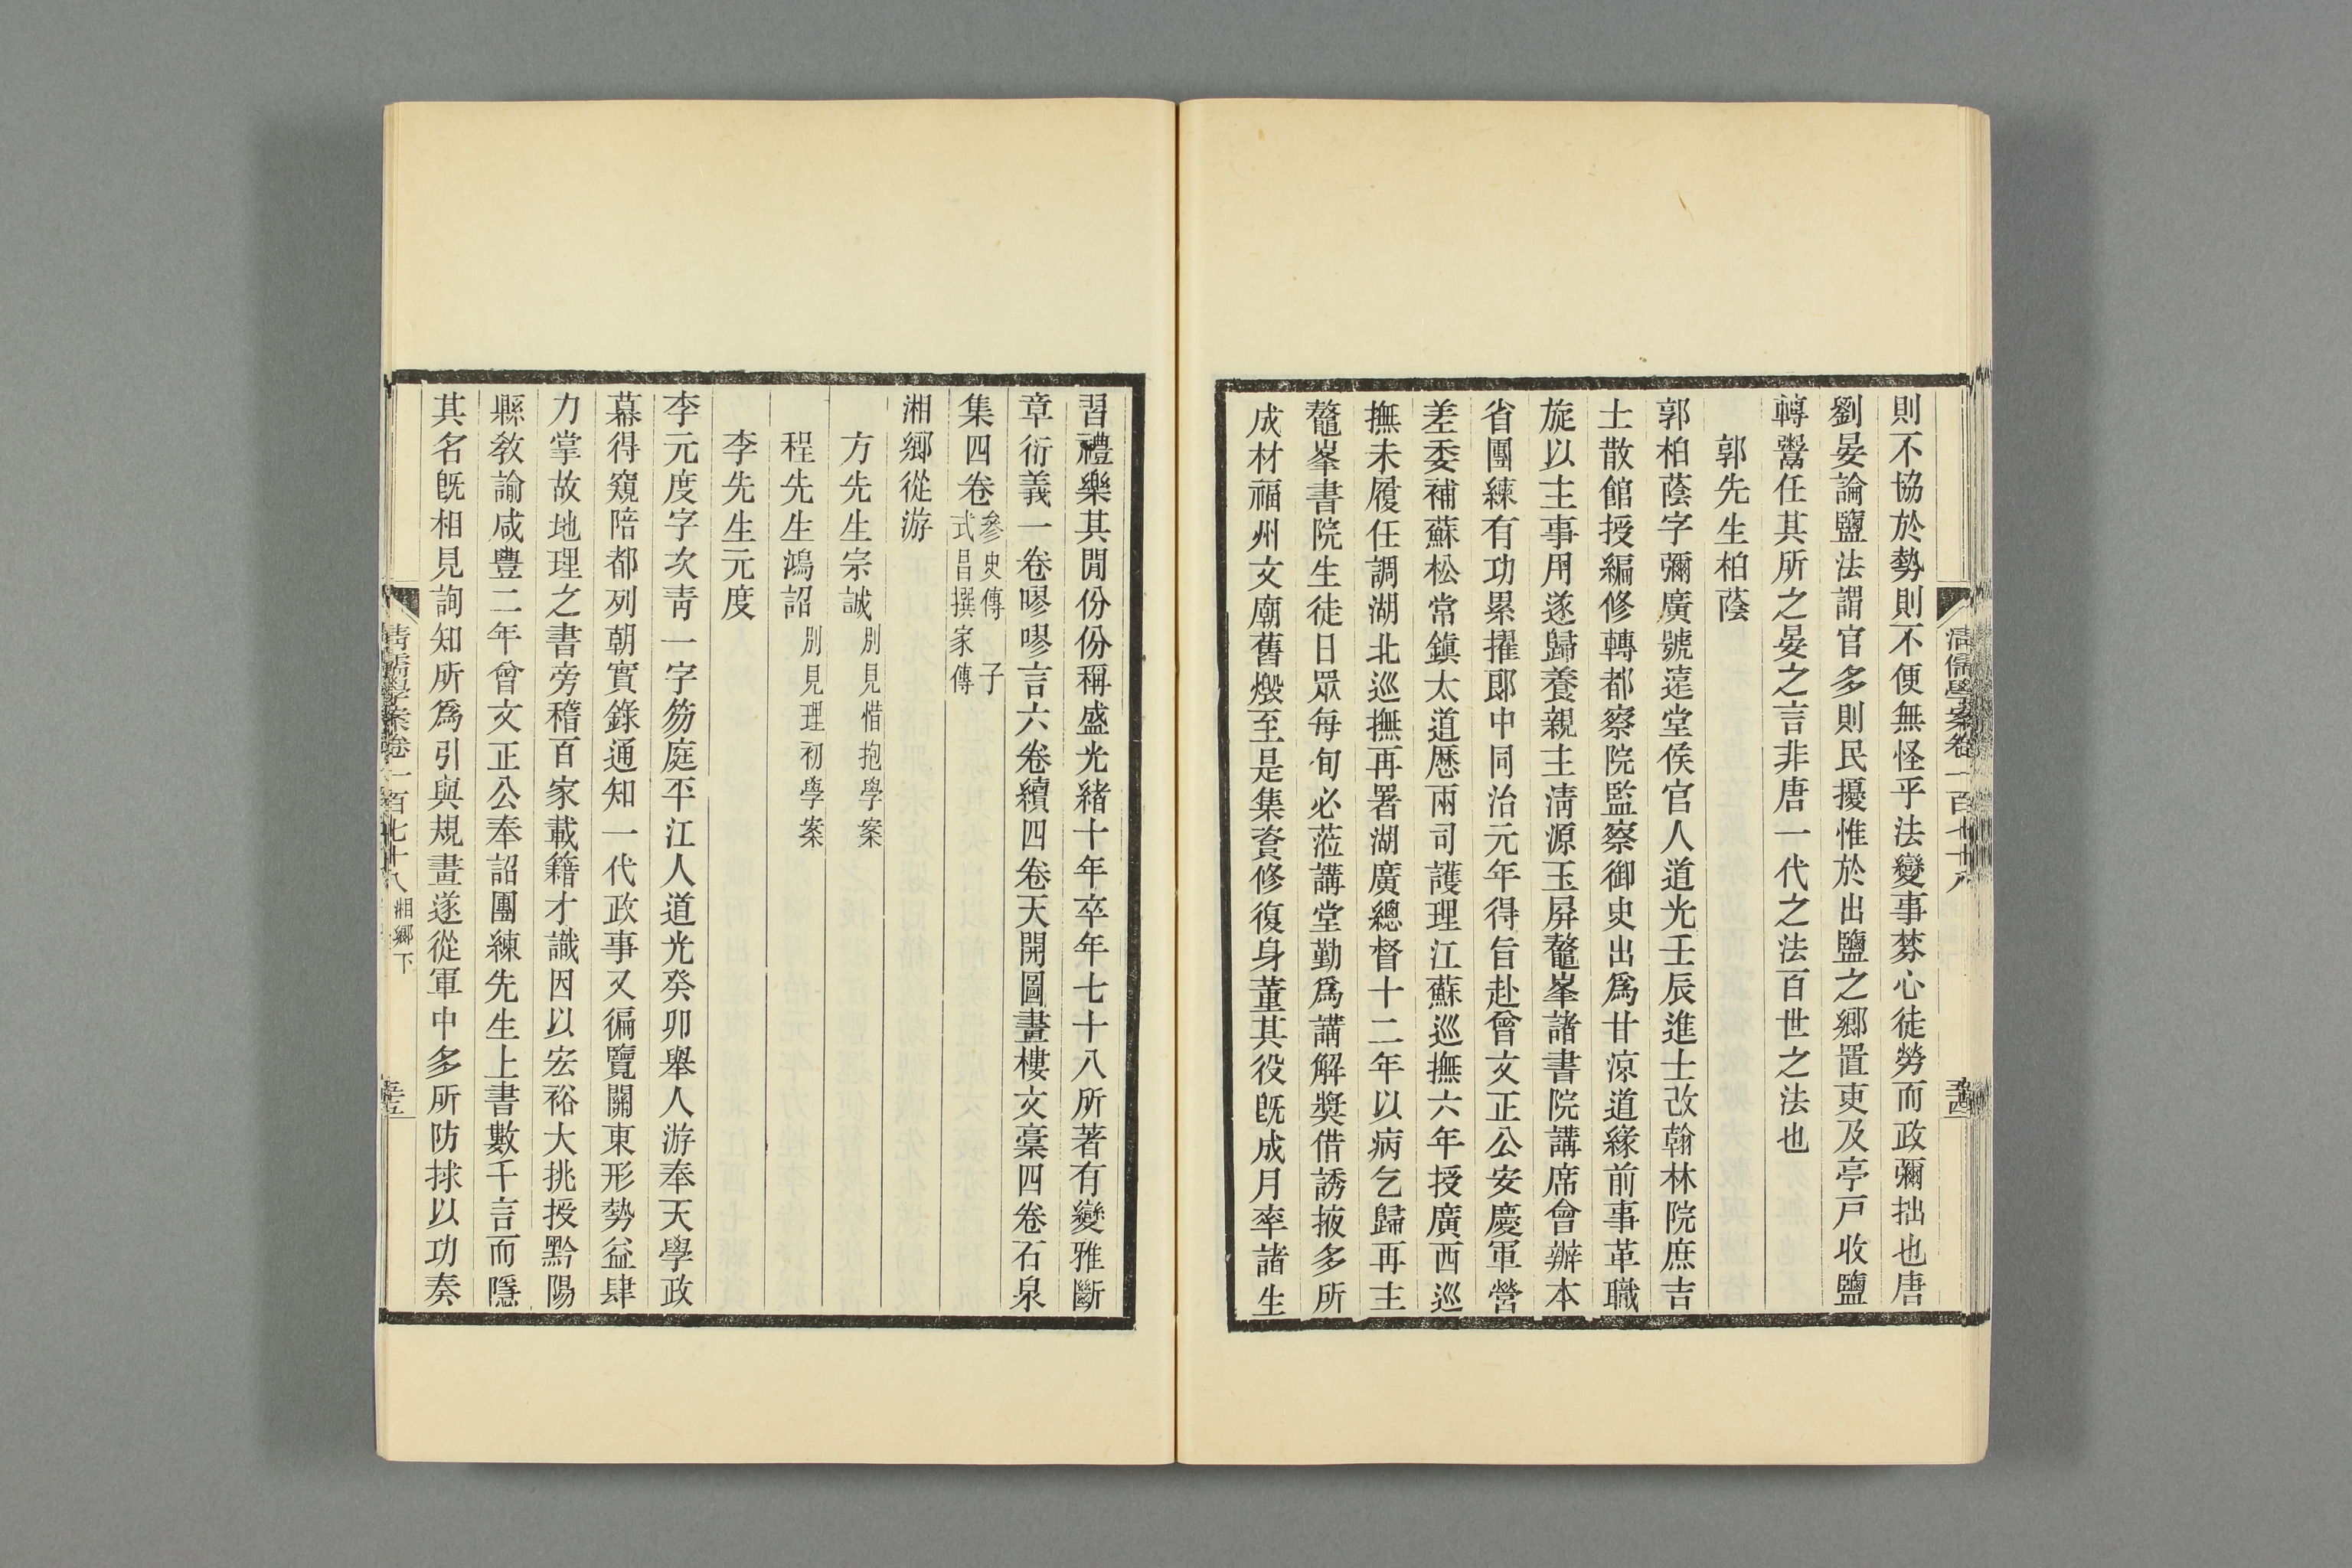 清儒學案卷一百七十八
五十四
則不協於勢則不便無怪乎法變事棼心徒勞而政彌拙也唐
劉晏論鹽法謂官多則民擾惟於出鹽之鄉置吏及亭戶收鹽
轉鬻任其所之晏之言非唐一代之法百世之法也
郭先生柏蔭
郭柏蔭字彌廣號遠堂侯官人道光壬辰進士改翰林院庶吉
士散館授編修轉都察院監察御史出爲甘涼道緣前事革職
旋以主事用遂歸養親主清源玉屏鼇峯諸書院講席會辦本
省團練有功累擢郞中同治元年得旨赴曾文正公安慶軍營
差委補蘇松常鎭太道歷兩司護理江蘇巡撫六年授廣西巡
撫未履任調湖北巡撫再署湖廣總督十二年以病乞歸再主
鼇峯書院生徒日眾每旬必蒞講堂勤爲講解獎借誘掖多所
成材福州文廟舊燬至是集資修復身董其役旣成月率諸生
習禮樂其閒份份稱盛光緖十年卒年七十八所著有變雅斷
章衍義一卷嘐嘐言六卷續四卷天開圖畫樓文稾四卷石泉
集四卷參史傳 子
式昌撰家傳
湘鄉從游
方先生宗誠別見惜抱學案
程先生鴻詔別見理初學案
李先生元度
李元度字次靑一字笏庭平江人道光癸卯舉人游奉天學政
幕得窺陪都列朝實錄通知一代政事又徧覽關東形勢益肆
力掌故地理之書旁稽百家載籍才識因以宏裕大挑授黔陽
縣敎諭咸豐二年曾文正公奉詔團練先生上書數千言而隱
其名旣相見詢知所爲引與規畫遂從軍中多所防捄以功奏
清儒學案卷一百七十八 湘鄉下
五十五